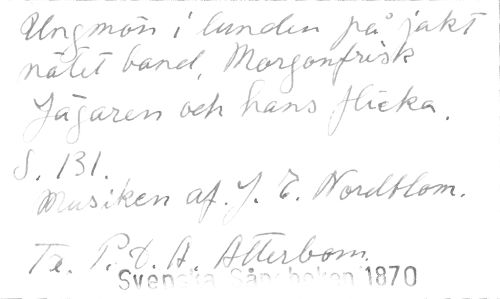 Ungmön i lunden på jakt
nätet band, Morgonfrisk
Jägaren och hans flicka.
S. 131.
Musiken af. J. E. Nordblom.
Te. P. D. A. Atterbom.
Svenska Sångboken 1870